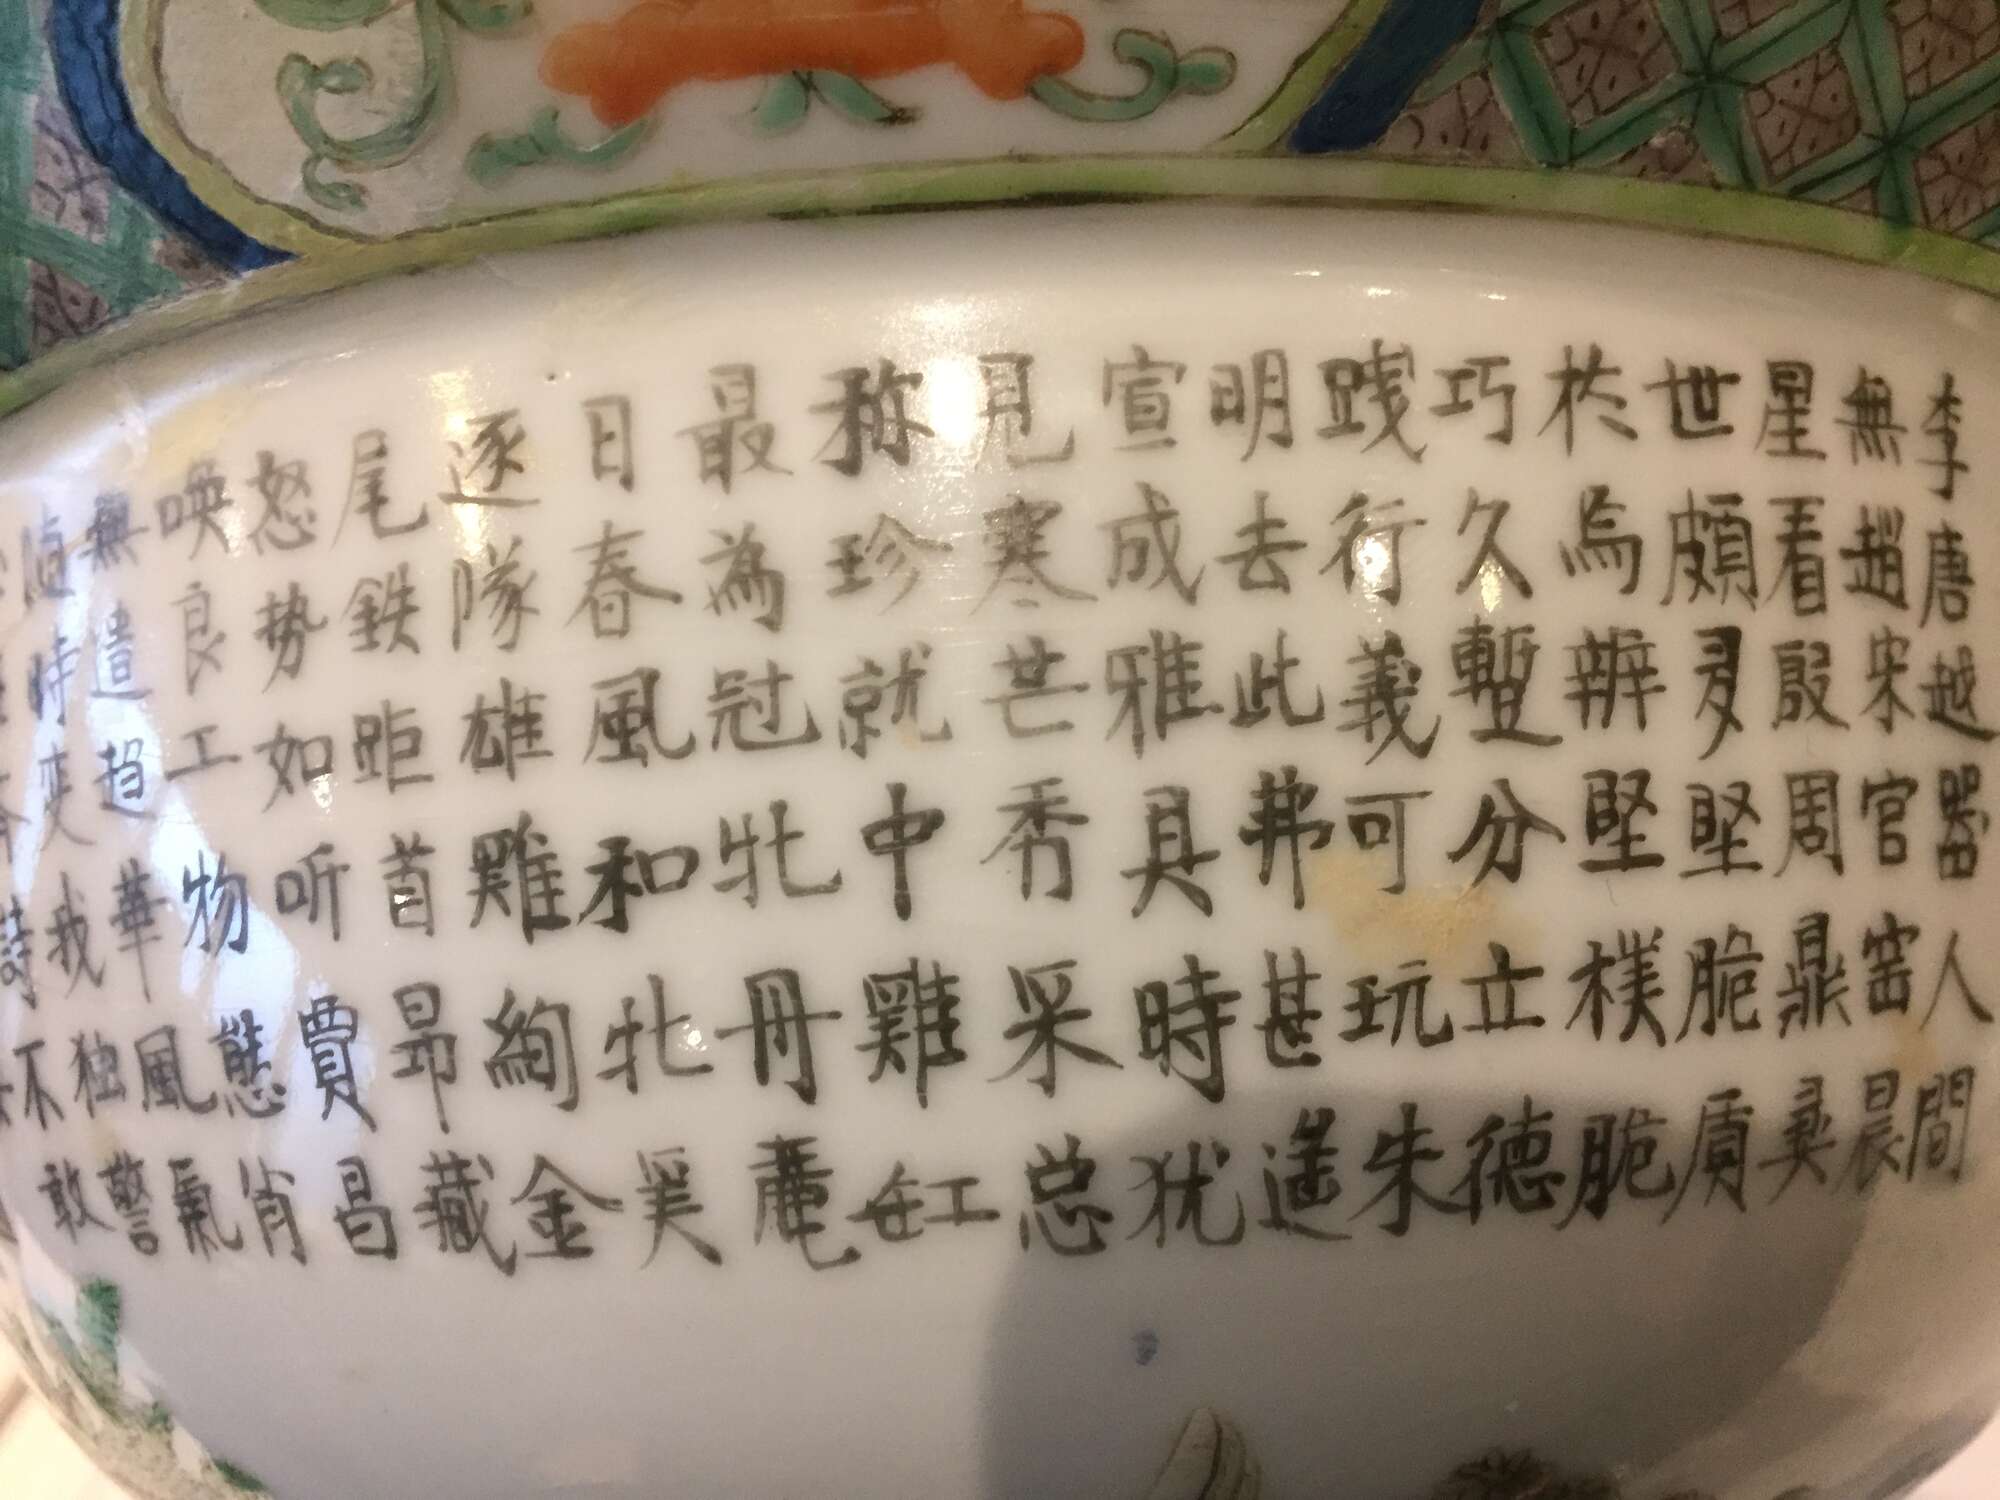 李唐越器人間
無趙宋官窑晨
星看殷周鼎彝
世頗多堅脆質
於焉辨堅樸脆
巧久暫分立德
踐行義可玩朱
明去此弗甚遥
宣成雅具時犹
見寒芒秀采总
称珍就中雞缸
最為冠牡丹麗
日春風和牝奚
逐隊雄雞絢金
尾鉄距首昂藏
怒势如听賈昌
唤良工物態肖
無遺趋華風氣
随時变我独警
詩不敢